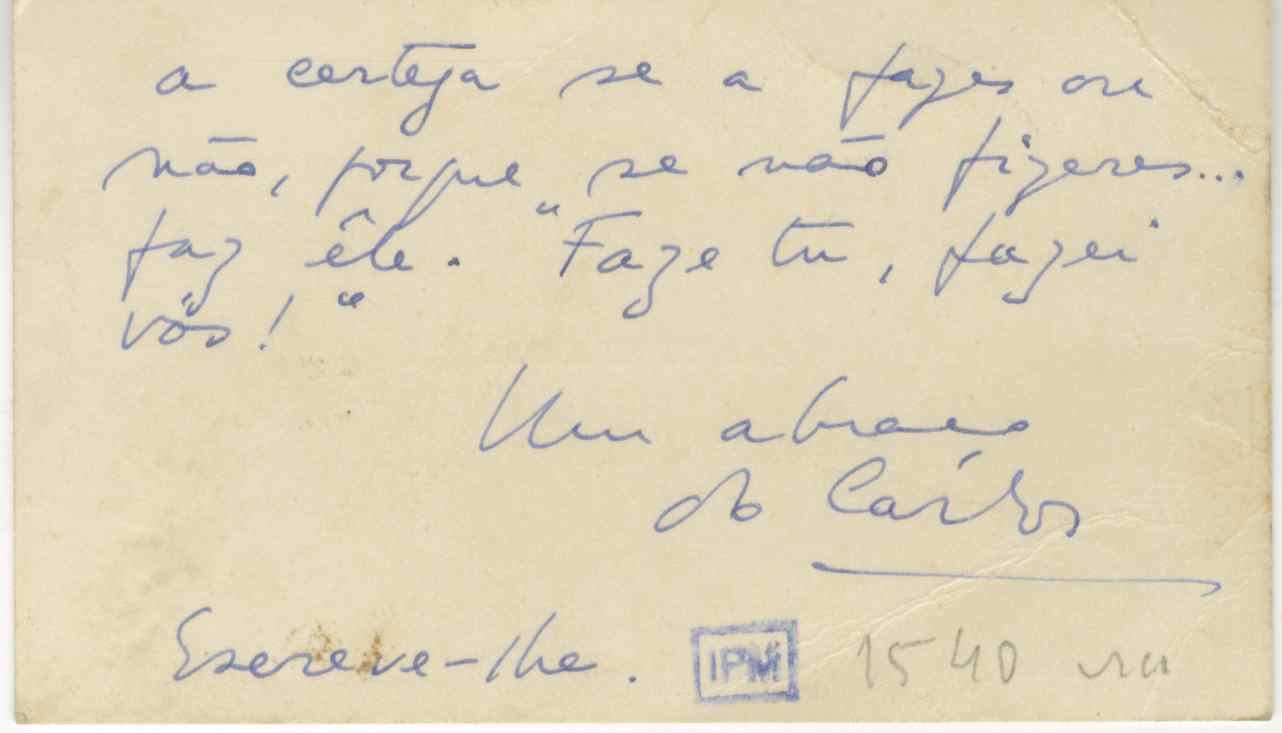 a certeza se a fazes ou
não, porque se não fizeres...
faz êle. "Faze tu, fazei
vós!"
Um abraço
do Cárlos
Escreve-lhe.
IPM 1540